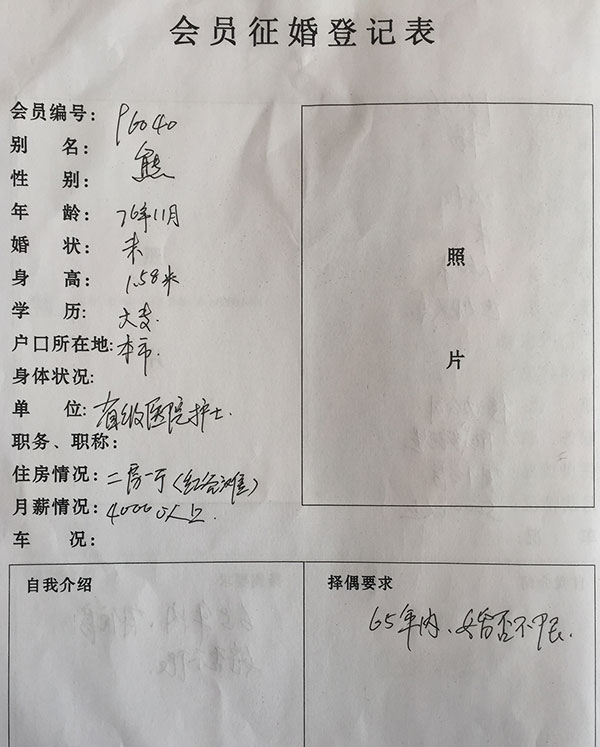 会员征婚登记表
会员编号: P6040
别 名: 熊
性 别:
年 龄: 76年11月
婚 状: 未
身 高: 1.58米
学 历: 大专
户口所在地: 本市
身体状况:
单 位: 省级医院护士.
职务、职称:
住房情况: 二房一厅(红谷滩)
月薪情况: 4000以上
车 况:
照
片
自我介绍
择偶要求
65年内、婚否不限.